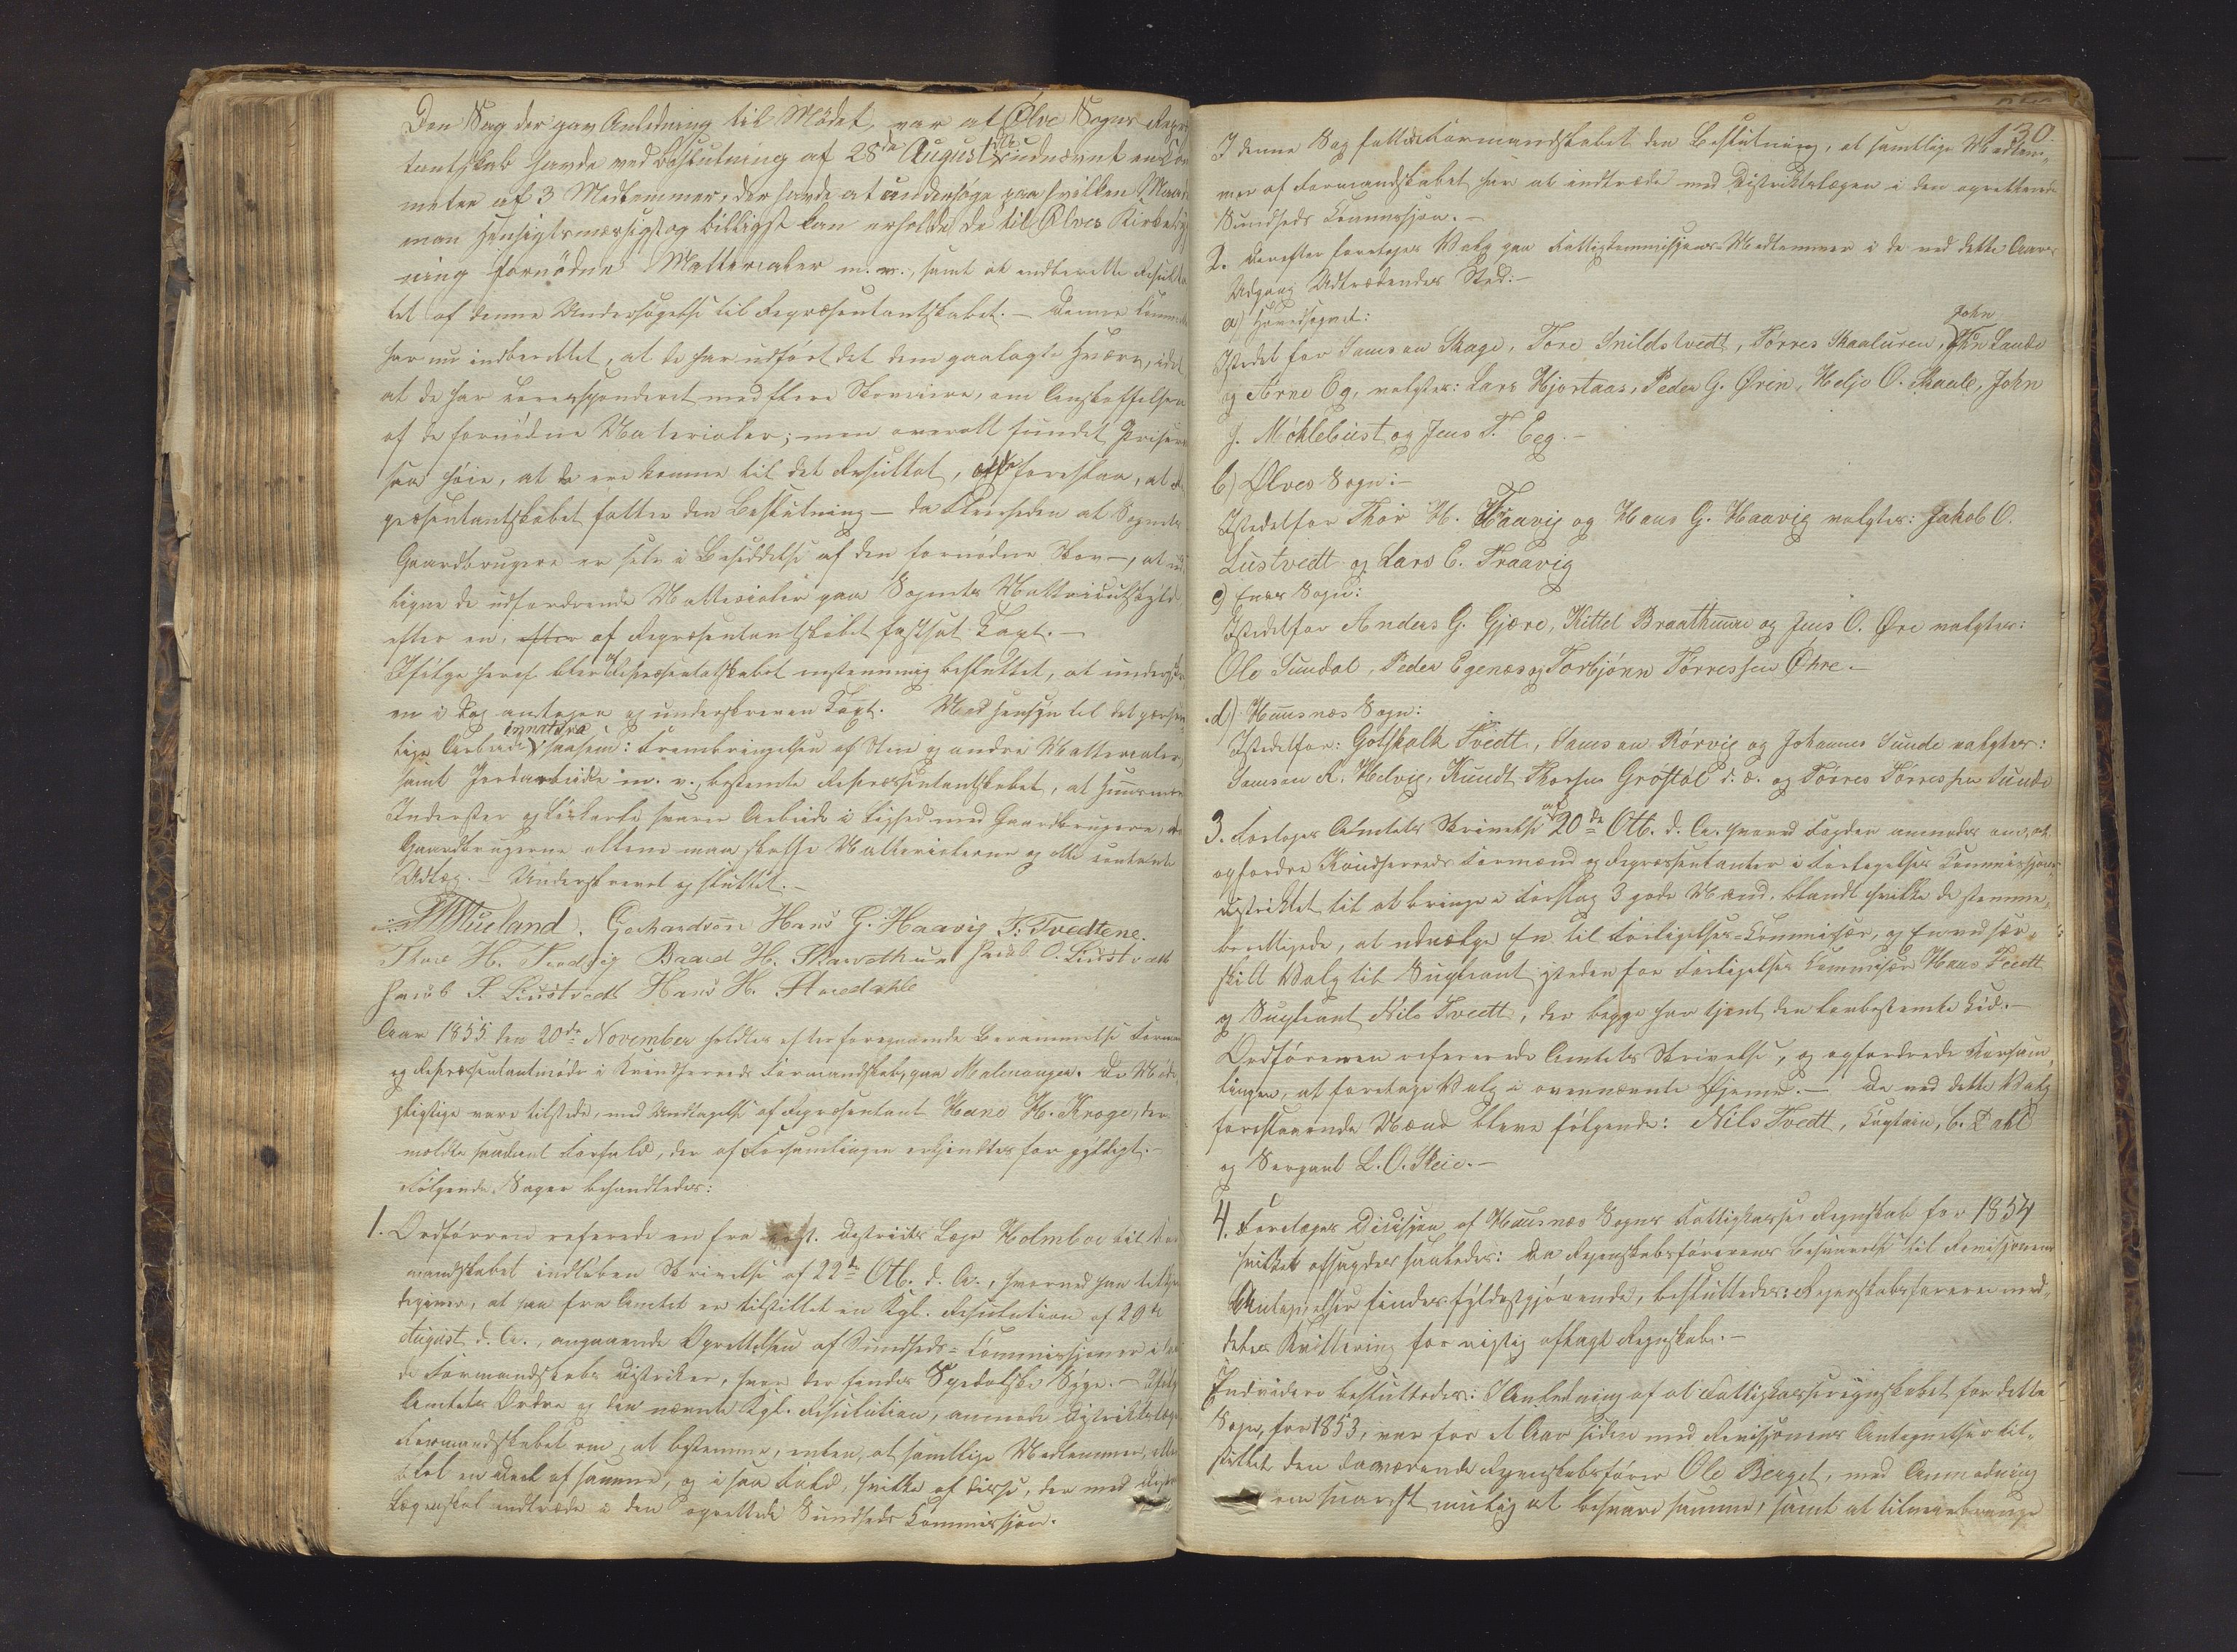 Den Sag der gav Anledning til Mødet, var at Ølve Sogns Repræ
tantskab havde ved Beslutning af 28de August udnævnt en Com
mitee af 3 Medlemmer, der havde at undersøge paa hvilken Maade
man hensigtsmæssigst og billigst kan erholde de til Ølves Kirkebyg
ning fornødne Matterialer m. v., samt at indberette Resulta
tet af denne Undersøgelse til Repræsentantskabet. — Denne Commite
har nu indberettet, at de har udført det dem paalagte Hværv, idet
at de har korresponderet med flere Skoveiere, om Anskaffelsen
af de fornødne Materialer; men overalt fundet Priserne
saa høie, at de ere komne til det Resultat, at foreslaa, at Re
præsentantskabet fatter den Beslutning — da Fleerheden at Sognets
Gaardbrugere er selv i Besiddelse af den fornødne Skov —, at ud
ligne de udfordrende Matterialier paa Sognets Matriculskyld,
efter en, efter af Repræsentantskabet fastsat Taxt. —
Ifølge heraf blev af Repræsentatskabet eenstemmig besluttet, at underskri
en i Dag antagen og underskreven Taxt. Med Hensyn til det pærson
lige Arbeide innvidre saasom: Frembringelsen af Steen og andre Matterialer,
samt Jordarbeide m. v., bestemte Repræsentantskabet, at Huusmæn
Inderster og Løskarle svarer Arbeide i Lighed med Gaardbrugere, da
Gaardbrugerne allene maa skaffe Matterialerne og alle contante
Udlæg. — Underskrevet og sluttet. —
Mueland. Gerhardsen Hans G. Haavig J. Tvedtene.
Thore H. Traavig Baard H. Skarvathun Jacob O. Liustvedt
Jacob S. Liustvedt Hans H. Aaredahle
Aar 1855 den 20de November holdtes efter foregaaende Berammelse Forman
og Repræsentantmøde i Kvindherreds Formandskab, paa Malmangen. De Møde
pligtige vare tilstede, med Undtagelse af Repræsentant Hans H. Kroge, der
meldte havdent Forfald, der af Forsamlingen erkjendtes for gyldigt. —
Følgende Sager behandledes:
1. Ordføreren referede en fra const. Districts Læge Holmboe til For
mandskabet indløben Skrivelse af 22de Otb. d. A., hvorved han tilkjen
degiver, at han fra Amtet er tilstillet en Kgl. Resulution af 29de
August d. A., angaaende Oprettelsen af Sundheds-Commissjoner i
de Formandskabs Distrikter, hvor der findes Spedalske Syge. — Ifølge
Amtets Ordre og den nævnte Kgl. Resulution, anmoder Districtslægen
Formandskabet om, at bestemme, enten, at samtlige Medlemmer, eller
blot en Deel af samme, og i saa Fald, hvilke af disse, der med Distr
Lægen skal indtræde i den oprettede Sundheds Commissjon.
130
I denne Sag fattede Formandskabet den Beslutning, at samtlige Medlem,
mer af Formandskabet har at indtræde med Districtslægen i den oprettende
Sundheds Commissjon. —
2. Derefter foretages Valg paa Fattigkommisjons-Medlemmer i de ved dette Aars
Udgang Udtrædendes Sted: —
a) Hovedsognet:
Istedet for Samson Skage, Tore Snildstvedt, Torres Skaaluren, John Sande
og Arne Eg, valgtes: Lars Hjortaas, Peder G. Ørin, Heljo O. Skaale, John
J. Møklebust og Jens T. Eeg. —
b) Ølves Sogn: —
Istedetfor Thor H. Traavig og Hans G. Haavig valgtes: Jakob O.
Liustvedt og Lars E. Traavig
c) Enes Sogn:
Istedetfor Anders G. Gjære, Kittel Braathuun og Jens O. Øre valgtes:
Ole Sundal, Peder Egenæs og Torbjørn Torressen Øhre. —
d) Huusnæs Sogn:
Istedetfor: Gotskalk Tvedt, Samson Rørvig og Johannes Sunde valgtes:
Samson K. Helvig, Knudt Thorsen Grøstøl d. æ. og Torres Torressen Sunde
3. Foretages Amtets Skrivelse af 20de Otb. d. A. hvorved Fogden anmodes om, at
opfordre Kvindherreds Formænd og Repræsentanter i Forligelses Commissjons-
Distriktet til at bringe i Forslag 3 gode Mænd, blandt hvilke de stemme,
berettigede, at udvælge En til Forligelses-Commissær, og En ved sær,
skilt Valg til Supleant isteden for Forligelses Commissær Hans Tvedt
og Supleant Nils Tvedt, der begge har tjent den lovbestemte Tid. —
Ordføreren refererede Amtets Skrivelse, og opfordrede Forsam,
lingen, at foretage Valg i ovennævnte Øjemed. — De ved dette Valg
foreslaaende Mænd bleve følgende: Nils Tvedt, Captain, C. Dahl
og Sergant L. O. Skeie. —
4. Foretages Dicisjon af Huusnæs Sogns Fattigkasses Regnskab for 1854
hvilket afsagdes saaledes: Da Regnskabsførerens Besvarelse til Revisjonens
Antegnelser findes fyldestgjørende, besluttedes: Regnskabsføreren med,
deles Kvittering for rigtig aflagt Regnskab. —
Endvidere besluttedes: I Anledning af at Fattigkasseregnskabet for dette
Sogn, for 1853, var for et Aar siden med Revisjonens Antegnelser til,
stillet den daværende Regnskabsfører Ole Berget, med Anmodning
om snarest mulig at besvare samme, samt at tilveiebringe